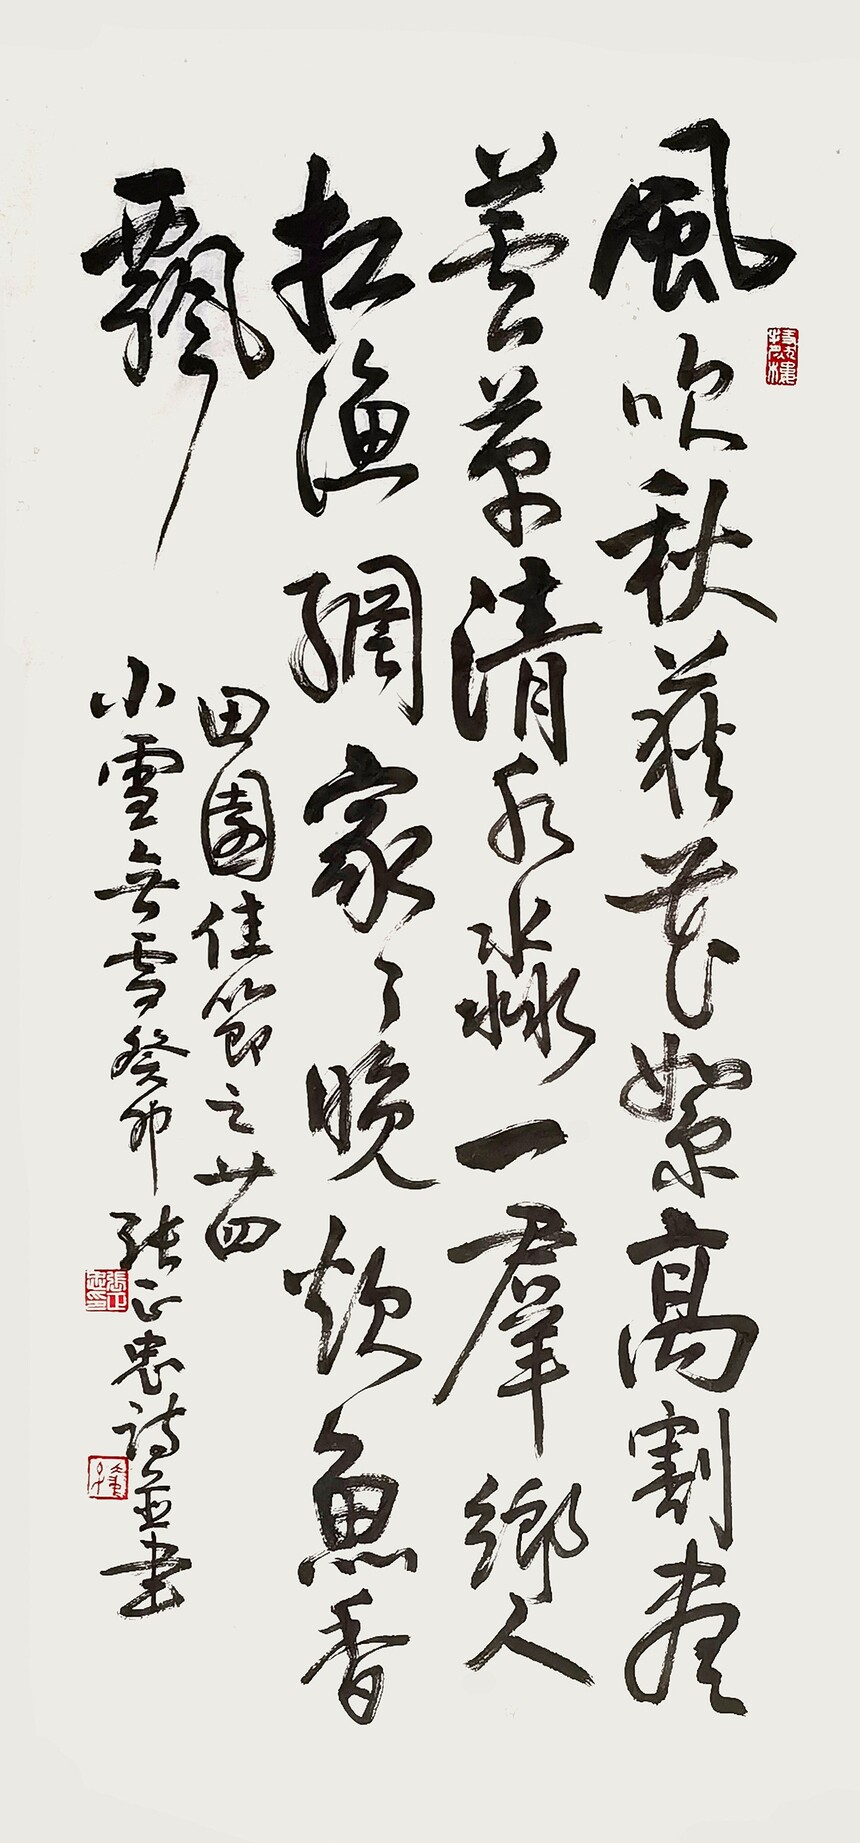 風吹秋荻花絮高割盡
蕓草清水淼一羣鄉人
扛漁網家々晚炊魚香
飄
田園佳節之廿四
小雪無雪癸卯張正忠詩並書